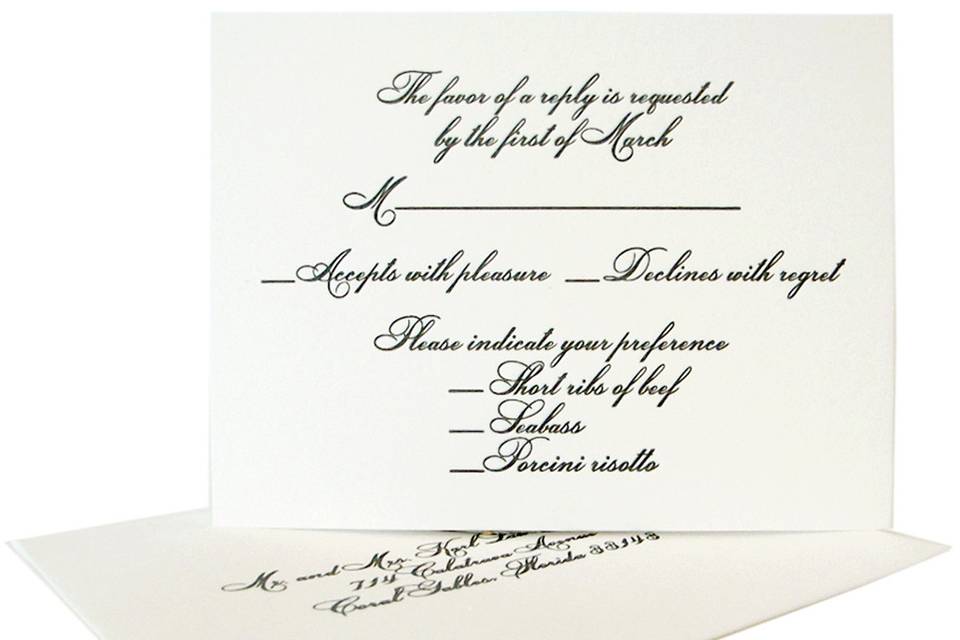 The favor of a reply is requested
by the first of March
M
Accepts with pleasure Declines with regret
Please indicate your preference
Short ribs of beef
Seabass
Porcini risotto
Mr. and Mrs. Karl
714 Calatrava Avenue
Coral Gables, Florida 33143